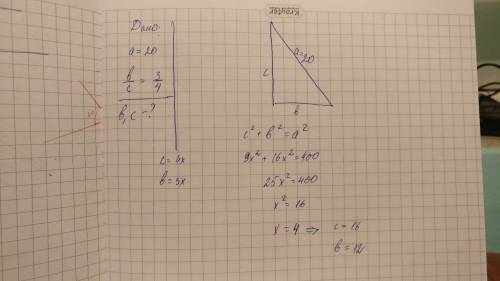 Дано:
a=20
в/с = 3/4
в, с -?
c=4x
в=3x
c
a=20
в
c²+в²=a²
9x²+16x²=400
25x²=400
x²=16
x=4 ⇒ c=16
в=12